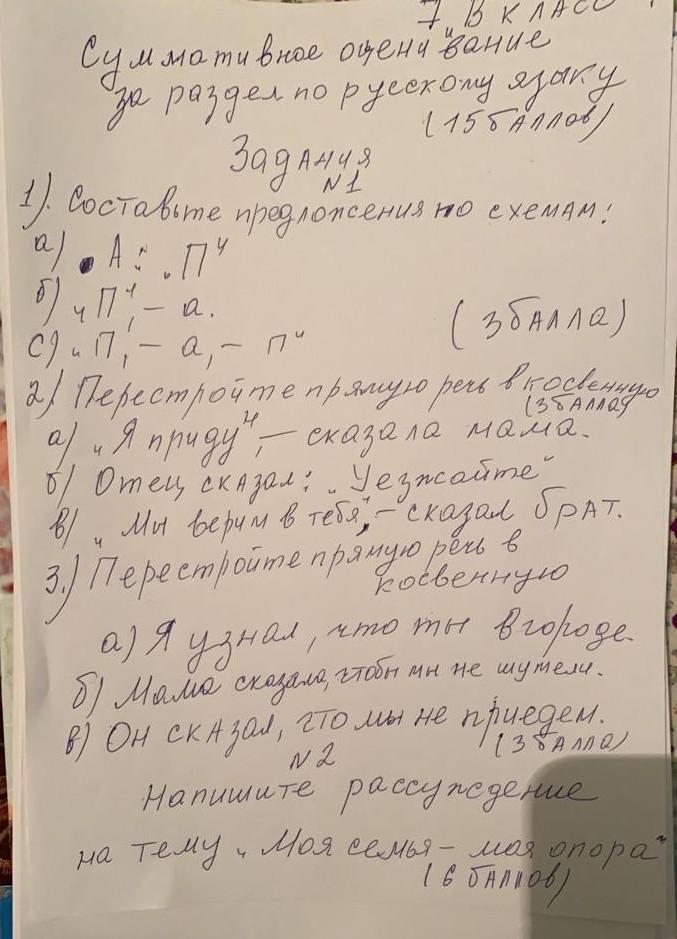 7 "В" КЛАСС
Суммативное оценивание
за раздел по русскому языку
(15 баллов)
Задания
N1
1). Составьте предложения по схемам:
а) А: „П“
б) „П“, – а.
с) „П, – а, – п“
(3 балла)
2) Перестройте прямую речь в косвенную
(3 балла)
а) „Я приду“, – сказала мама.
б) Отец сказал: „Уезжайте“
в) „Мы верим в тебя“, – сказал брат.
3.) Перестройте прямую речь в
косвенную
а) Я узнал, что ты в городе.
б) Мама сказала, чтобы мы не шумели.
в) Он сказал, что мы не приедем.
(3 балла)
N2
Напишите рассуждение
на тему „Моя семья – моя опора“
(6 баллов)